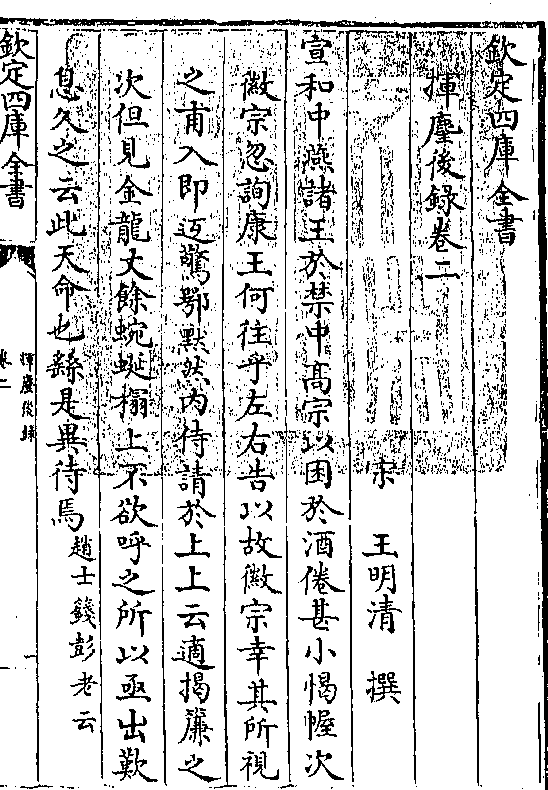 欽定四庫全書
揮麈後録卷二
宋 王明清 撰
宣和中燕諸王於禁中髙宗以困於酒倦甚小愒幄次
徽宗忽詢康王何往乎左右告以故徽宗幸其所視
之甫入即返驚鄂黙然内侍請於上上云適揭簾之
次但見金龍丈餘蜿蜒榻上不欲呼之所以亟出歎
息久之云此天命也繇是異待焉趙士䥧彭老云
欽定四庫全書
揮麈後録
卷二